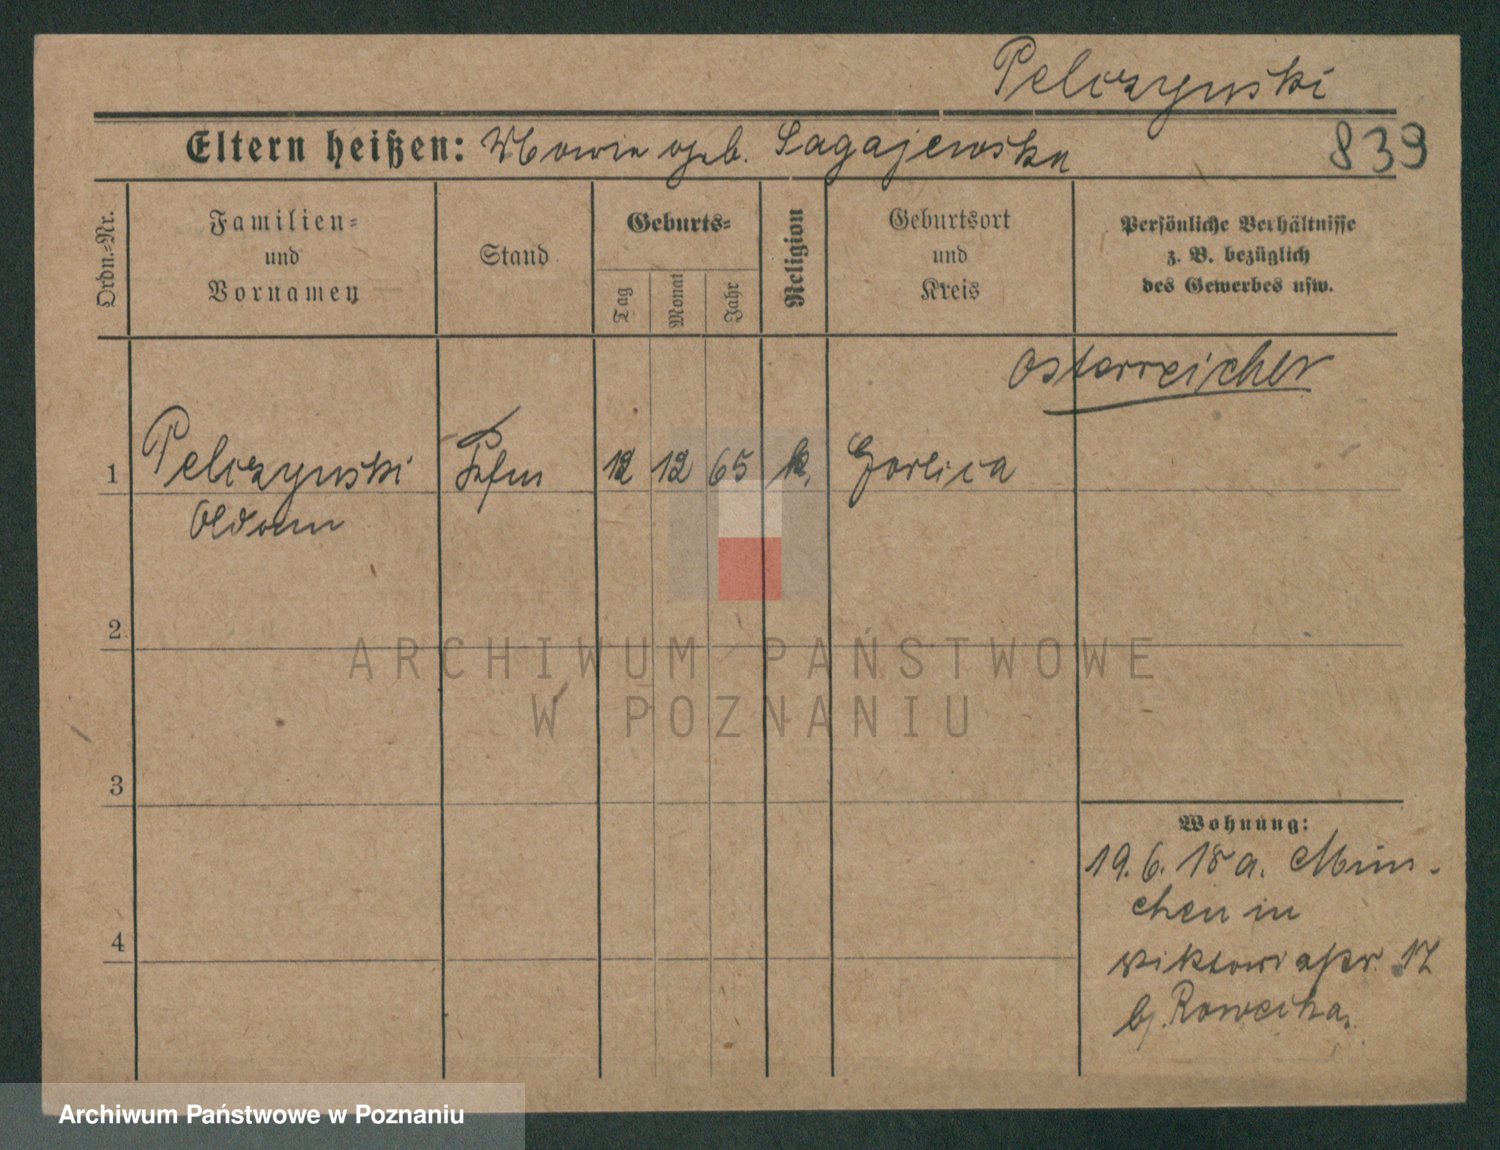 Pelczynski
Eltern heißen: Maria geb. Sagajewska 839
Ordn.-Nr.
Familien-
und
Vornamen
Stand
Geburts-
Tag
Monat
Jahr
Religion
Geburtsort
und
Kreis
Persönliche Verhältnisse
z. B. bezüglich
des Gewerbes usw.
Österreicher
1 Pelczynski 12 12 65 k. Gorlica
Adam
2
3
4
Wohnung:
19. 6. 18 a. Mün-
chen in
Viktoriastr. 17
b.
ARCHIWUM PAŃSTWOWE
W POZNANIU
Archiwum Państwowe w Poznaniu